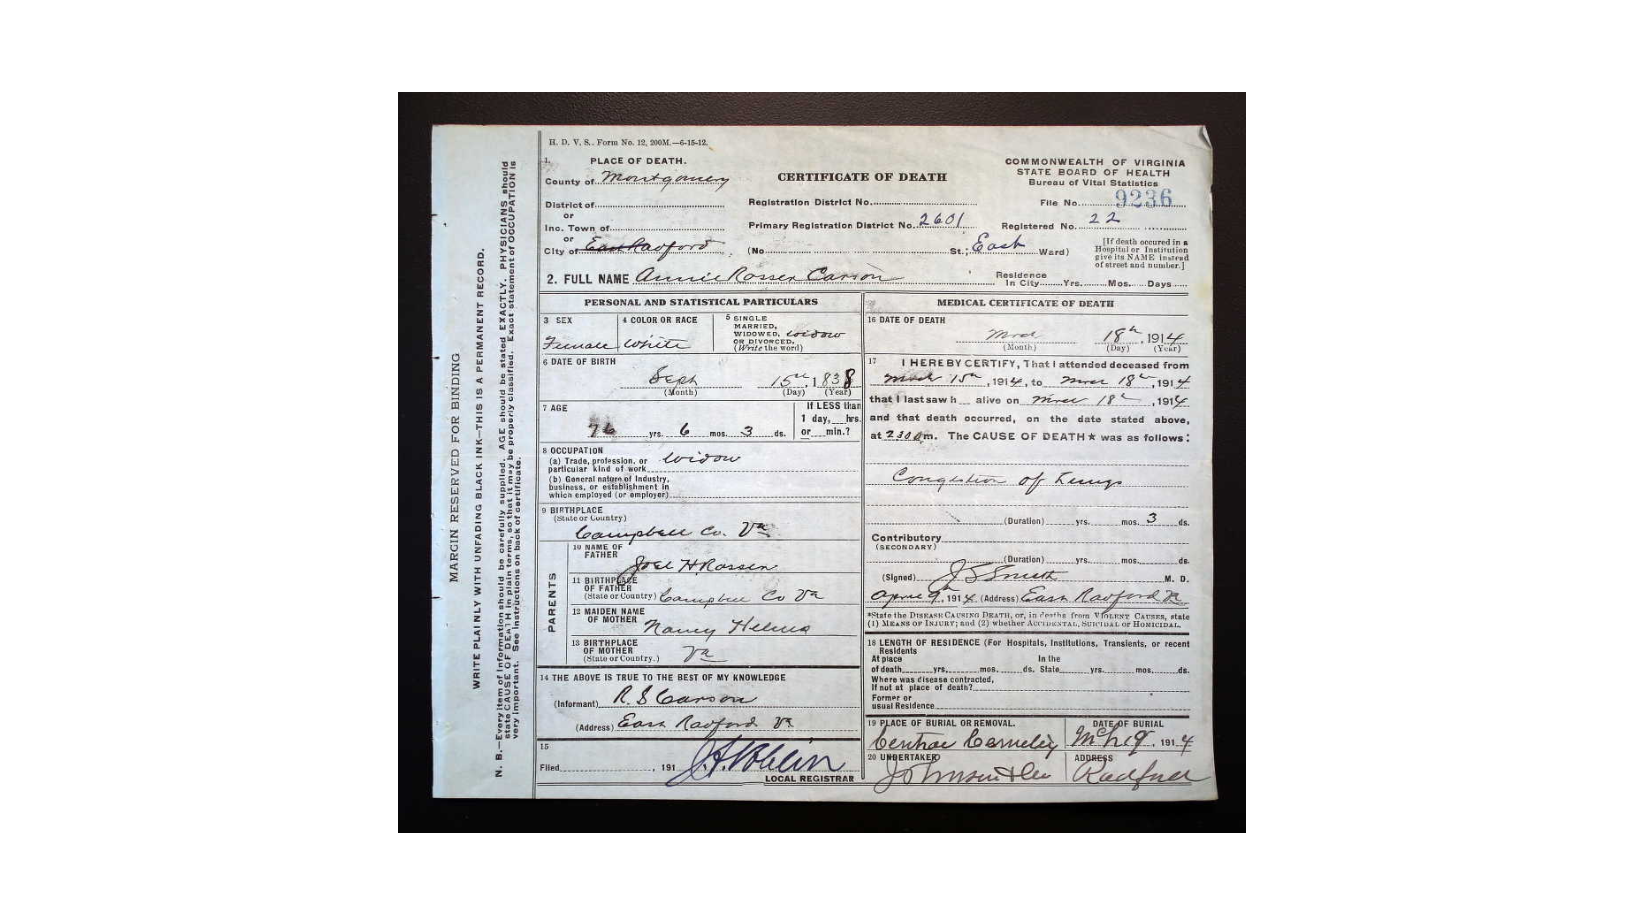 H. D. V. S.. Form No. 12, 200M.—6-15-12.
1. PLACE OF DEATH.
County of Montgomery
District of
or
Inc. Town of
or
City of East Radford
CERTIFICATE OF DEATH
Registration District No.
Primary Registration District No. 2601
(No. St.; East Ward)
COMMONWEALTH OF VIRGINIA
STATE BOARD OF HEALTH
Bureau of Vital Statistics
File No. 9236
Registered No. 22
[If death occured in a
Hospital or Institution
give its NAME instead
of street and number.]
2. FULL NAME Annie Rosser Carson
Residence
In City Yrs. Mos. Days
PERSONAL AND STATISTICAL PARTICULARS
3 SEX
Female
4 COLOR OR RACE
White
5 SINGLE
MARRIED,
WIDOWED, widow
OR DIVORCED.
(Write the word)
6 DATE OF BIRTH
Sept 15th, 1838
(Month) (Day) (Year)
7 AGE
76 yrs. 6 mos. 3 ds.
If LESS than
1 day, hrs.
or min.?
8 OCCUPATION
(a) Trade, profession, or
particular kind of work widow
(b) General nature of Industry,
business, or establishment in
which employed (or employer)
9 BIRTHPLACE
(State or Country)
Campbell Co. Va
PARENTS
10 NAME OF
FATHER
Joel H. Rosser
11 BIRTHPLACE
OF FATHER
(State or Country) Campbell Co Va
12 MAIDEN NAME
OF MOTHER
Nancy Helms
13 BIRTHPLACE
OF MOTHER
(State or Country.) Va
14 THE ABOVE IS TRUE TO THE BEST OF MY KNOWLEDGE
(Informant) R. S Carson
(Address) East Radford Va
15
Filed , 191
LOCAL REGISTRAR
MEDICAL CERTIFICATE OF DEATH
16 DATE OF DEATH
18th, 1914
(Month) (Day) (Year)
17 I HEREBY CERTIFY, That I attended deceased from
15th, 1914, to 18th, 1914
that I last saw h alive on 18th, 1914
and that death occurred, on the date stated above,
at 230 m. The CAUSE OF DEATH★ was as follows:
Congestion of Lungs
(Duration) yrs. mos. 3 ds.
Contributory
(SECONDARY)
(Duration) yrs. mos. ds.
(Signed) J S Smith M. D.
April 9th, 1914 (Address) East Radford Va
*State the DISEASE CAUSING DEATH, or, in deaths from VIOLENT CAUSES, state
(1) MEANS OF INJURY; and (2) whether ACCIDENTAL, SUICIDAL OR HOMICIDAL.
18 LENGTH OF RESIDENCE (For Hospitals, Institutions, Transients, or recent
Residents
At place In the
of death yrs. mos. ds. State yrs. mos. ds.
Where was disease contracted,
If not at place of death?
Former or
usual Residence
19 PLACE OF BURIAL OR REMOVAL.
Central Cemetery
DATE OF BURIAL
Mch 19, 1914
20 UNDERTAKER
ADDRESS
Radford
MARGIN RESERVED FOR BINDING
WRITE PLAINLY WITH UNFADING BLACK INK—THIS IS A PERMANENT RECORD.
N. B.—Every item of information should be carefully supplied. AGE should be stated EXACTLY. PHYSICIANS should
state CAUSE OF DEATH in plain terms, so that it may be properly classified. Exact statement of OCCUPATION is
very important. See Instructions on back of certificate.